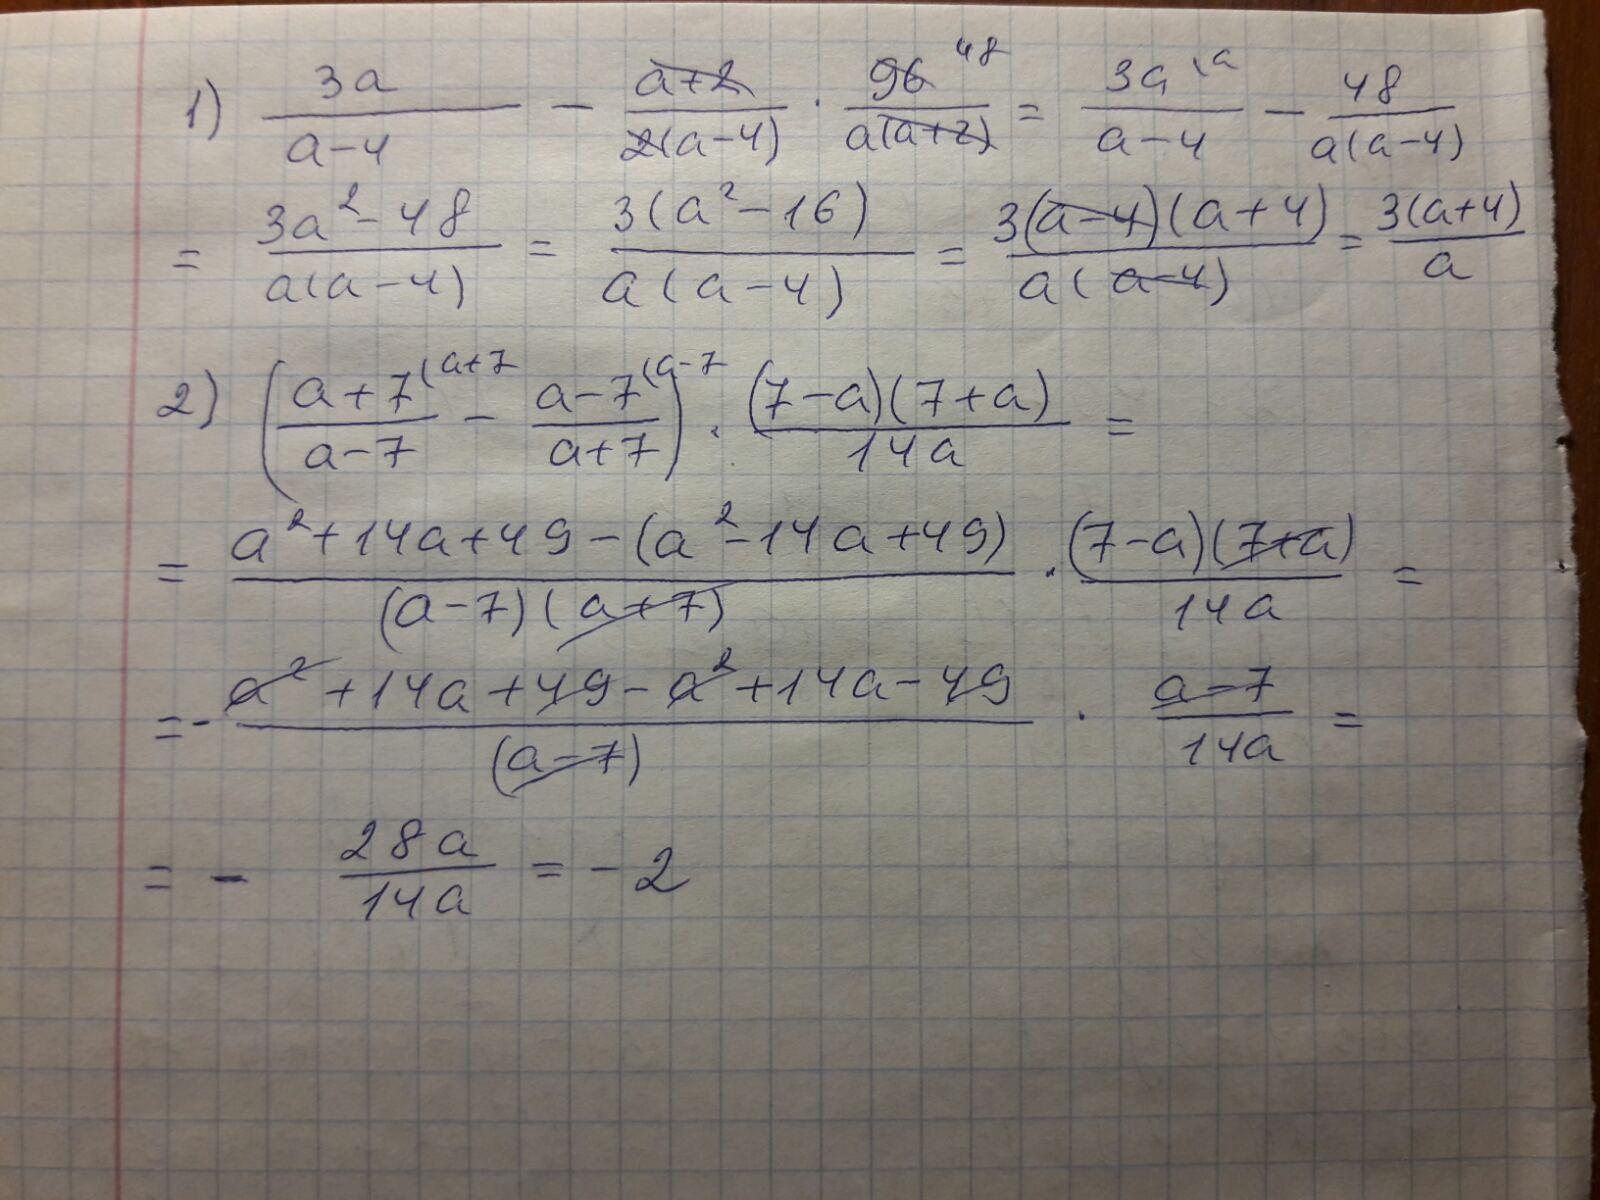 1) 3a/(a-4) - (a+2)/(2(a-4)) · 96 48/(a(a+2)) = 3a (a/(a-4) - 48/(a(a-4))
= (3a² - 48)/(a(a-4)) = 3(a² - 16)/(a(a-4)) = 3(a-4)(a+4)/(a(a-4)) = 3(a+4)/a
2) ((a+7 (a+7)/(a-7) - (a-7 (a-7)/(a+7)) · (7-a)(7+a)/14a =
= (a² + 14a + 49 - (a² - 14a + 49))/((a-7)(a+7)) · (7-a)(7+a)/14a =
= - (a² + 14a + 49 - a² + 14a - 49)/(a-7) · (a-7)/14a =
= - 28a/14a = -2